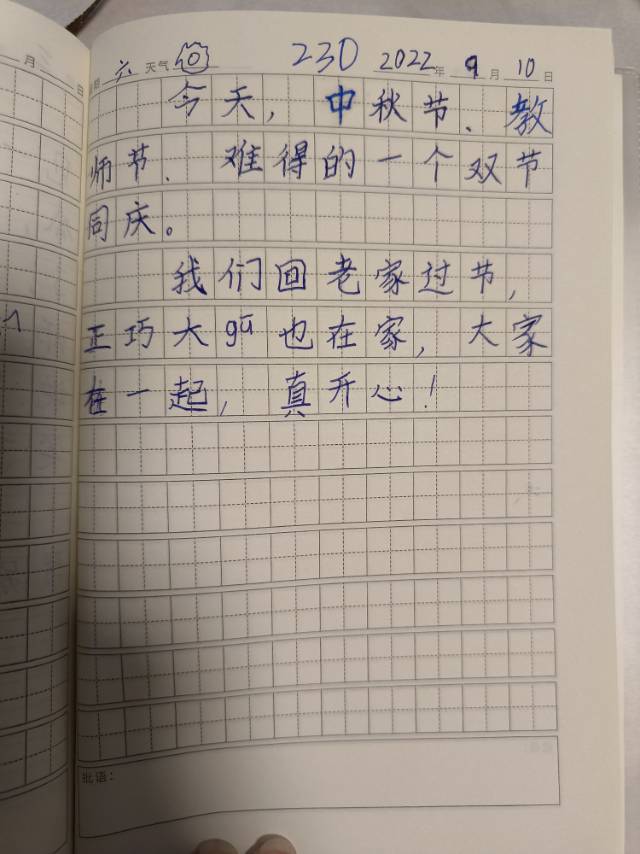 六 天气 230 2022年 9月 10日
今天，中秋节、教
师节、难得的一个双节
同庆。
我们回老家过节，
正巧大gū也在家，大家
在一起，真开心！
批语：
月 日